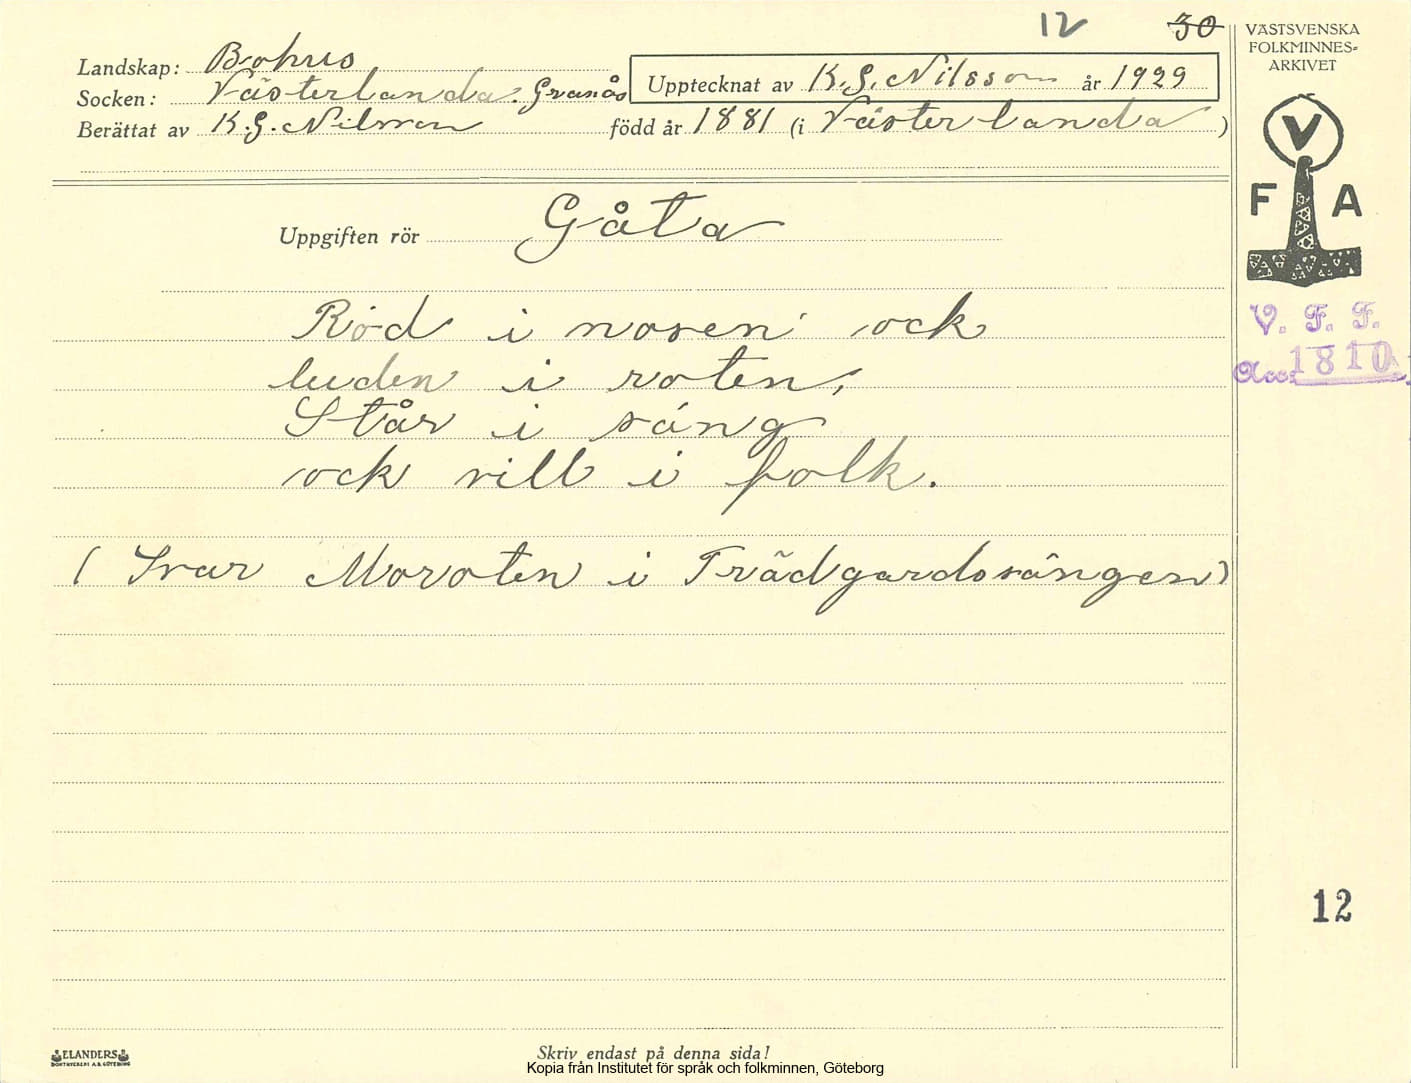 12 30
VÄSTSVENSKA
FOLKMINNES-
ARKIVET
Landskap: Bohus
Socken: Västerlanda. Granås
Upptecknat av K.G. Nilsson år 1929
Berättat av K.G. Nilsson född år 1881 (i Västerlanda)
V
F A
Uppgiften rör Gåta
V. F. F.
Acc: 1810
Röd i nosen ock
luden i roten,
Står i säng
ock vill i folk.
(Svar Moroten i Trädgardssängen)
12
ELANDERS
BOKTRYCKERI A.B. GÖTEBORG
Skriv endast på denna sida!
Kopia från Institutet för språk och folkminnen, Göteborg